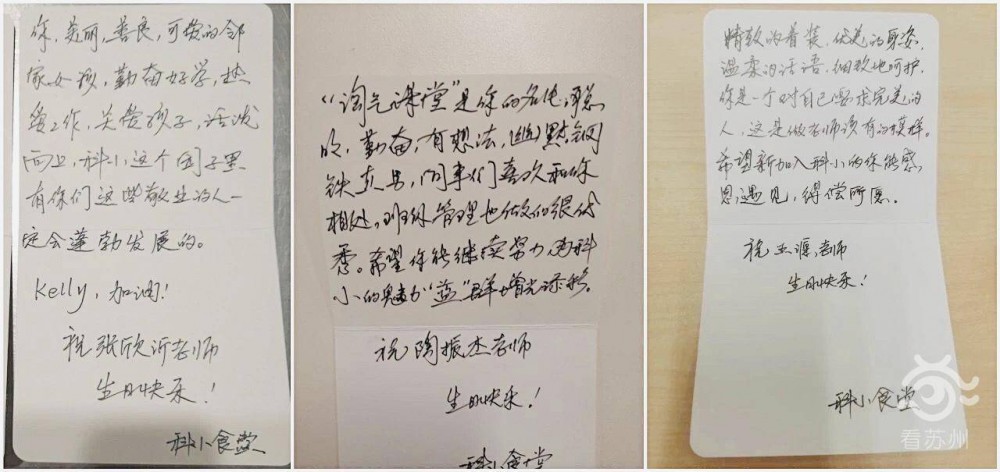 你,美丽,善良,可爱的邻
家女孩,勤奋好学,热
爱工作,关爱孩子,活泼
而上,科小这个园子里
有你们这些敬业的人一
定会蓬勃发展的。
Kelly,加油!
祝张欣沂老师
生日快乐!
科小食堂
“淘气课堂”是你的名片,聪
明,勤奋,有想法,幽默,钢
铁直男,同事们喜欢和你
相处,班级管理也做的很优
秀。希望你能继续努力为科
小的魅力“蓝”群增光添彩。
祝陶振杰老师
生日快乐!
科小食堂
精致的着装,优美的身姿,
温柔的话语,细致地呵护,
你是一个对自己要求完美的
人,这是做老师该有的模样。
希望新加入科小的你能感
恩遇见,得偿所愿。
祝王 老师
生日快乐!
科小食堂
看苏州